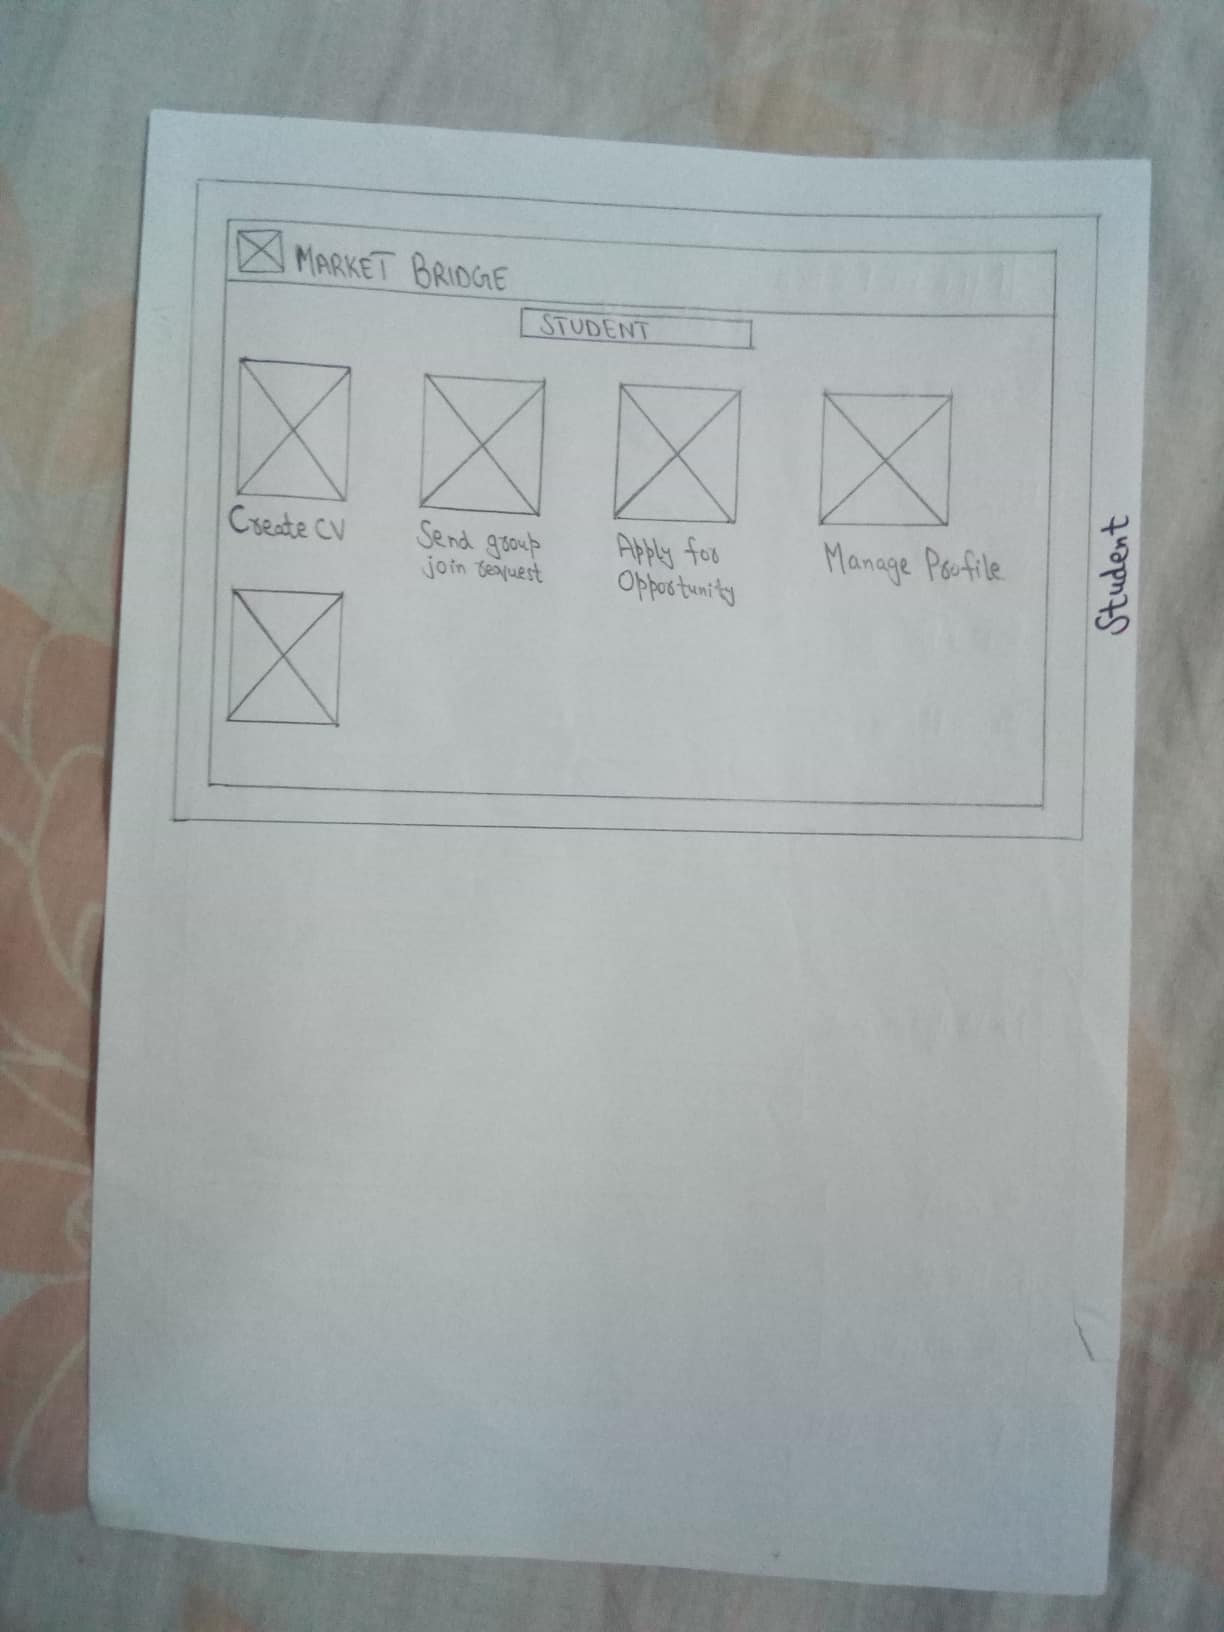 MARKET BRIDGE
STUDENT
Create CV
Send group
join request
Apply for
Opportunity
Manage Profile
Student